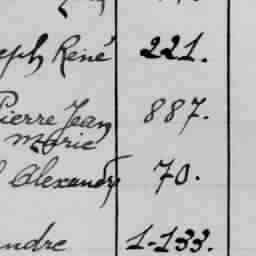 eph René 221.
Pierre Jean 887.
Marie
Alexandre 70.
andre 1-133.